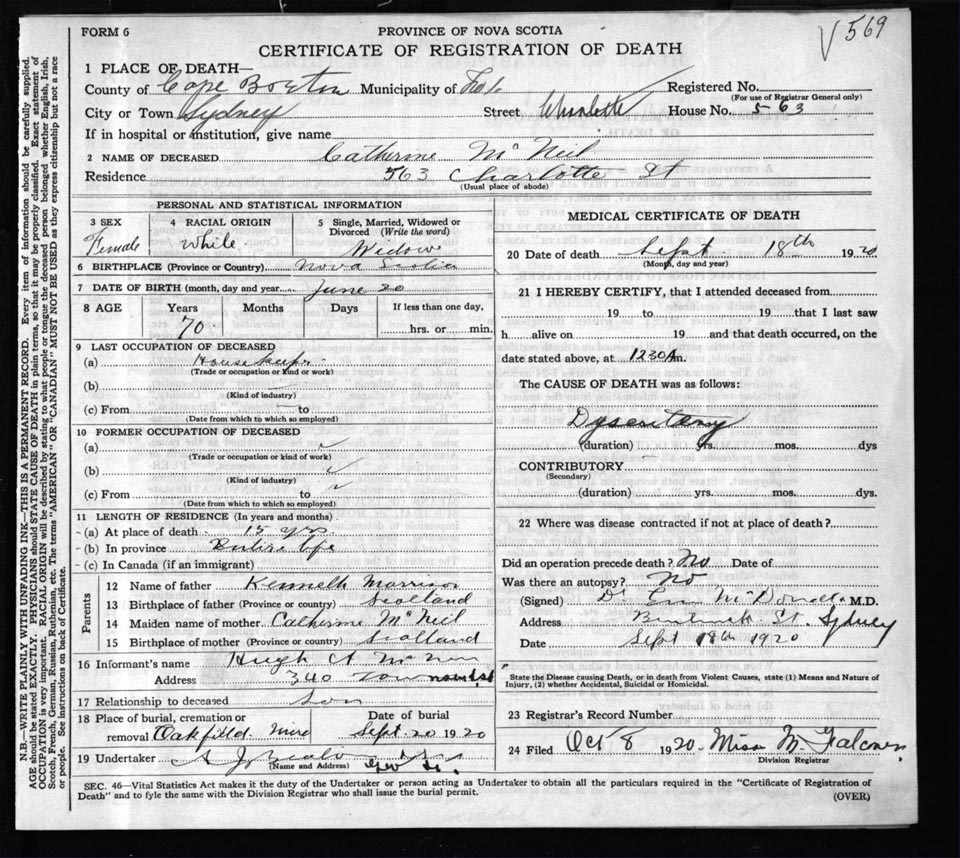 V 569
FORM 6
PROVINCE OF NOVA SCOTIA
CERTIFICATE OF REGISTRATION OF DEATH
1 PLACE OF DEATH—
County of Cape Breton Municipality of Registered No.
(For use of Registrar General only)
City or Town Sydney Street Charlotte House No. 563
If in hospital or institution, give name
2 NAME OF DECEASED Catherine McNeil
Residence 563 Charlotte St
(Usual place of abode)
PERSONAL AND STATISTICAL INFORMATION
3 SEX 4 RACIAL ORIGIN 5 Single, Married, Widowed or Divorced (Write the word)
Female White Widow
6 BIRTHPLACE (Province or Country) Nova Scotia
7 DATE OF BIRTH (month, day and year) June 20
8 AGE Years Months Days If less than one day,
70 hrs. or min.
9 LAST OCCUPATION OF DECEASED
(a) Housekeeper
(Trade or occupation or kind or work)
(b)
(Kind of industry)
(c) From to
(Date from which to which so employed)
10 FORMER OCCUPATION OF DECEASED
(a)
(Trade or occupation or kind of work)
(b)
(Kind of industry)
(c) From to
(Date from which to which so employed)
11 LENGTH OF RESIDENCE (In years and months)
(a) At place of death 15 yrs
(b) In province Entire life
(c) In Canada (if an immigrant)
Parents
12 Name of father Kenneth Morrison
13 Birthplace of father (Province or country) Scotland
14 Maiden name of mother Catherine McNeil
15 Birthplace of mother (Province or country) Scotland
16 Informant's name Hugh A
Address 340 Townsend St
17 Relationship to deceased Son
18 Place of burial, cremation or removal Oakfield Mira Date of burial Sept 20 1920
19 Undertaker A J Beaton
(Name and Address)
MEDICAL CERTIFICATE OF DEATH
20 Date of death Sept 18th 1920
(Month, day and year)
21 I HEREBY CERTIFY, that I attended deceased from
19 to 19 that I last saw
h alive on 19 and that death occurred, on the
date stated above, at 1230 A m.
The CAUSE OF DEATH was as follows:
Dysentery
(duration) yrs. mos. dys
CONTRIBUTORY
(Secondary)
(duration) yrs. mos. dys.
22 Where was disease contracted if not at place of death?
Did an operation precede death? No Date of
Was there an autopsy? No
(Signed) Dr McDonald M.D.
Address St. Sydney
Date Sept 18th 1920
State the Disease causing Death, or in death from Violent Causes, state (1) Means and Nature of Injury, (2) whether Accidental, Suicidal or Homicidal.
23 Registrar's Record Number
24 Filed Oct 8 1920 Miss M Falconer
Division Registrar
SEC. 46—Vital Statistics Act makes it the duty of the Undertaker or person acting as Undertaker to obtain all the particulars required in the "Certificate of Registration of
Death" and to fyle the same with the Division Registrar who shall issue the burial permit.
(OVER)
N.B.—WRITE PLAINLY WITH UNFADING INK—THIS IS A PERMANENT RECORD. Every item of information should be carefully supplied.
AGE should be stated EXACTLY. PHYSICIANS should STATE CAUSE OF DEATH in plain terms, so that it may be properly classified. Exact statement of
OCCUPATION is very important. RACIAL ORIGIN will be described by stating to what people or tongue the deceased person belonged whether English, Irish,
Scotch, French, German, Russian, Ruthenian, etc. The terms "AMERICAN" OR "CANADIAN" MUST NOT BE USED as they express citizenship but not a race
or people. See instructions on back of Certificate.